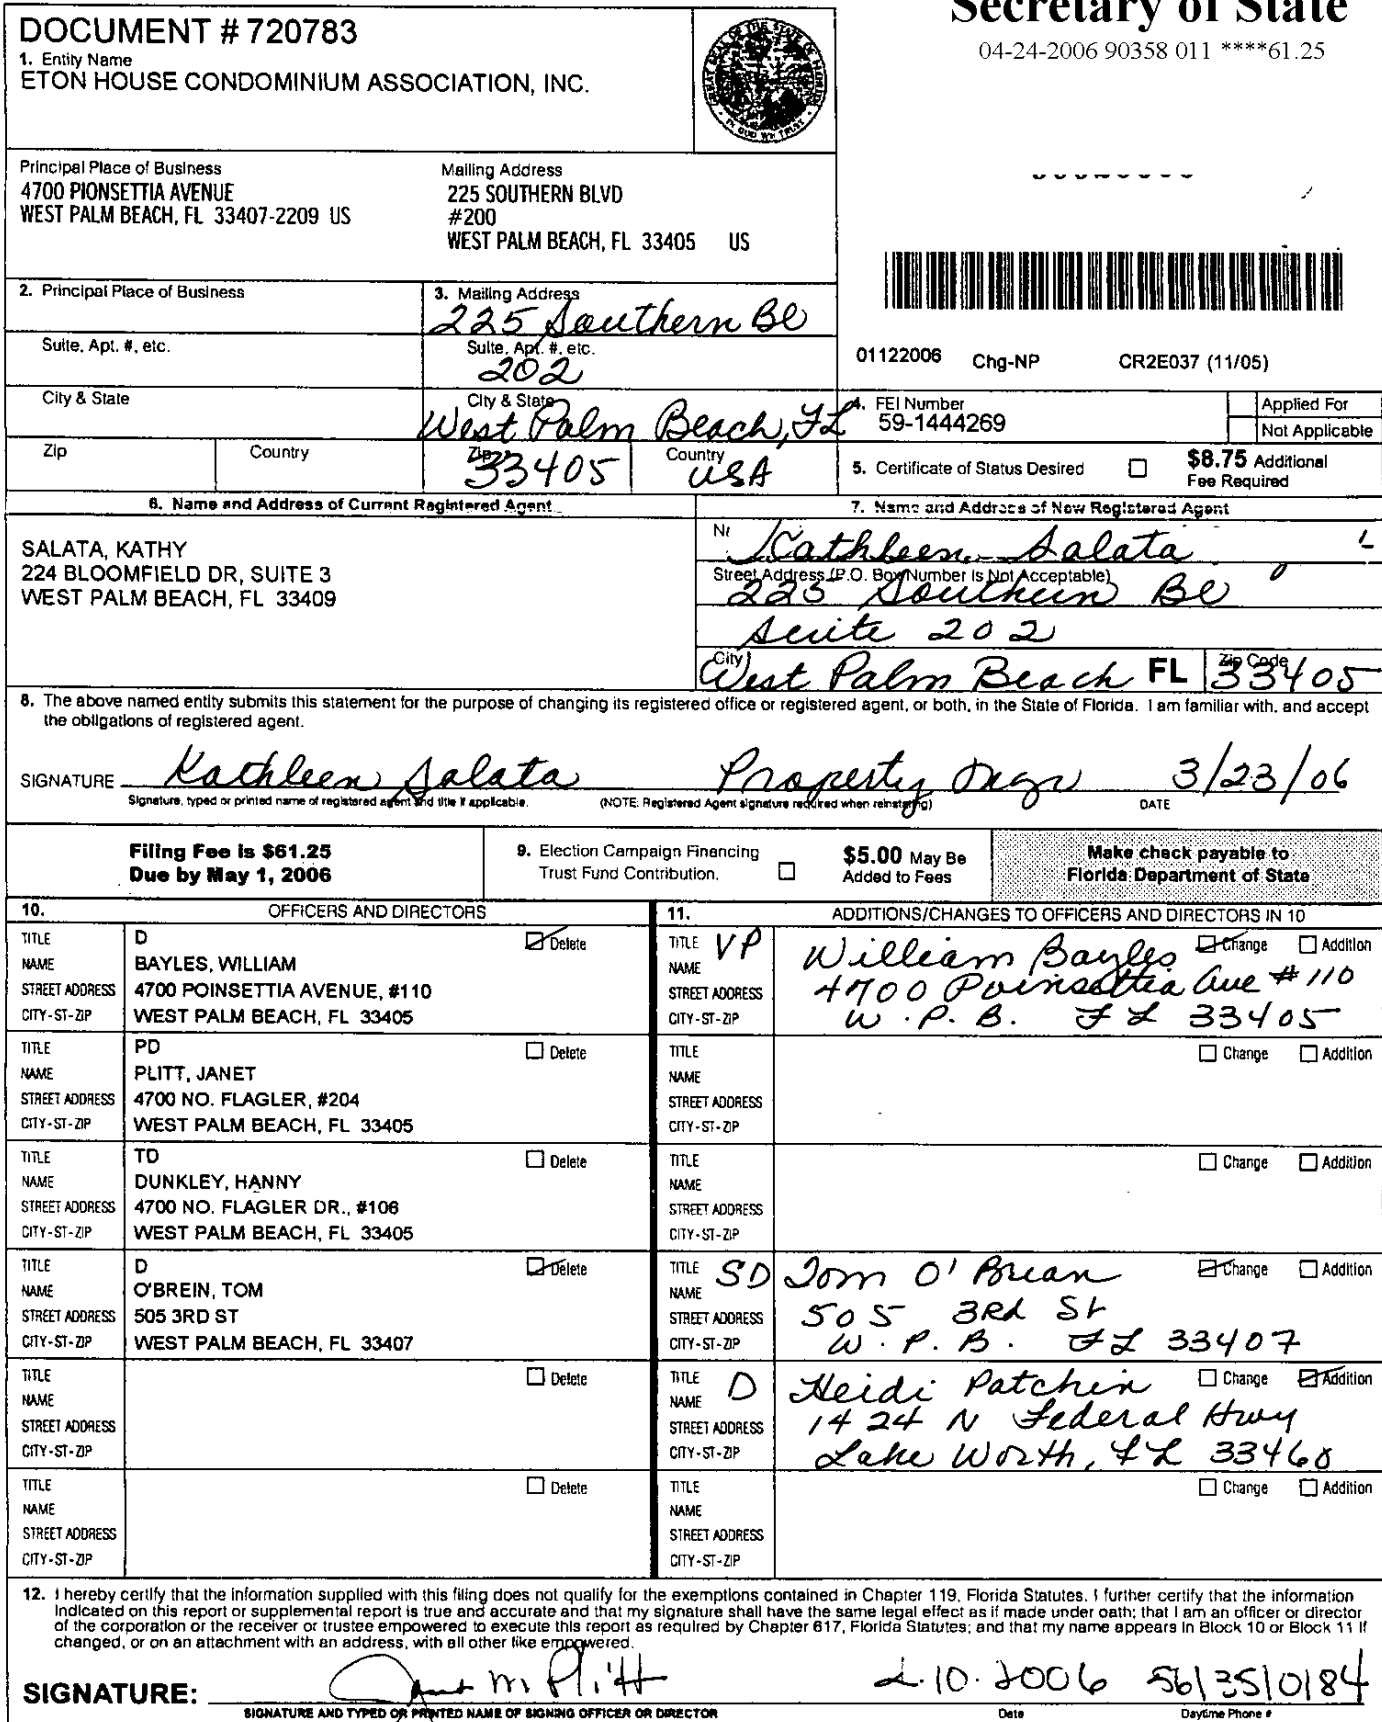 Secretary of State
04-24-2006 90358 011 ****61.25
DOCUMENT # 720783
1. Entity Name
ETON HOUSE CONDOMINIUM ASSOCIATION, INC.
Principal Place of Business
4700 PIONSETTIA AVENUE
WEST PALM BEACH, FL 33407-2209 US
Mailing Address
225 SOUTHERN BLVD
#200
WEST PALM BEACH, FL 33405 US
2. Principal Place of Business
3. Mailing Address
225 Southern Bl
Suite, Apt. #, etc.
Suite, Apt. #, etc.
202
City & State
City & State
West Palm Beach, FL
Zip
Country
Zip
33405
Country
USA
01122006 Chg-NP CR2E037 (11/05)
4. FEI Number
59-1444269
Applied For
Not Applicable
5. Certificate of Status Desired
$8.75 Additional
Fee Required
6. Name and Address of Current Registered Agent
SALATA, KATHY
224 BLOOMFIELD DR, SUITE 3
WEST PALM BEACH, FL 33409
7. Name and Address of New Registered Agent
Kathleen Salata
Street Address (P.O. Box Number Is Not Acceptable)
225 Southern Bl
Suite 202
City
West Palm Beach FL
Zip Code
33405
8. The above named entity submits this statement for the purpose of changing its registered office or registered agent, or both, in the State of Florida. I am familiar with, and accept
the obligations of registered agent.
SIGNATURE Kathleen Salata Property Mgr 3/23/06
Signature, typed or printed name of registered agent and title if applicable. (NOTE: Registered Agent signature required when reinstating) DATE
Filing Fee is $61.25
Due by May 1, 2006
9. Election Campaign Financing
Trust Fund Contribution.
$5.00 May Be
Added to Fees
Make check payable to
Florida Department of State
10. OFFICERS AND DIRECTORS
11. ADDITIONS/CHANGES TO OFFICERS AND DIRECTORS IN 10
TITLE D Delete
NAME BAYLES, WILLIAM
STREET ADDRESS 4700 POINSETTIA AVENUE, #110
CITY-ST-ZIP WEST PALM BEACH, FL 33405
TITLE VP Change Addition
NAME William Bayles
STREET ADDRESS 4700 Poinsettia Ave #110
CITY-ST-ZIP W.P.B. FL 33405
TITLE PD Delete
NAME PLITT, JANET
STREET ADDRESS 4700 NO. FLAGLER, #204
CITY-ST-ZIP WEST PALM BEACH, FL 33405
TITLE Change Addition
NAME
STREET ADDRESS
CITY-ST-ZIP
TITLE TD Delete
NAME DUNKLEY, HANNY
STREET ADDRESS 4700 NO. FLAGLER DR., #106
CITY-ST-ZIP WEST PALM BEACH, FL 33405
TITLE Change Addition
NAME
STREET ADDRESS
CITY-ST-ZIP
TITLE D Delete
NAME O'BREIN, TOM
STREET ADDRESS 505 3RD ST
CITY-ST-ZIP WEST PALM BEACH, FL 33407
TITLE SD Change Addition
NAME Tom O'Brian
STREET ADDRESS 505 3Rd St
CITY-ST-ZIP W.P.B. FL 33407
TITLE Delete
NAME
STREET ADDRESS
CITY-ST-ZIP
TITLE D Change Addition
NAME Heidi Patchin
STREET ADDRESS 1424 N Federal Hwy
CITY-ST-ZIP Lake Worth, FL 33460
TITLE Delete
NAME
STREET ADDRESS
CITY-ST-ZIP
TITLE Change Addition
NAME
STREET ADDRESS
CITY-ST-ZIP
12. I hereby certify that the information supplied with this filing does not qualify for the exemptions contained in Chapter 119, Florida Statutes. I further certify that the information
indicated on this report or supplemental report is true and accurate and that my signature shall have the same legal effect as if made under oath; that I am an officer or director
of the corporation or the receiver or trustee empowered to execute this report as required by Chapter 617, Florida Statutes; and that my name appears in Block 10 or Block 11 if
changed, or on an attachment with an address, with all other like empowered.
SIGNATURE: Janet M Plitt 2.10.2006 5613510184
SIGNATURE AND TYPED OR PRINTED NAME OF SIGNING OFFICER OR DIRECTOR Date Daytime Phone #